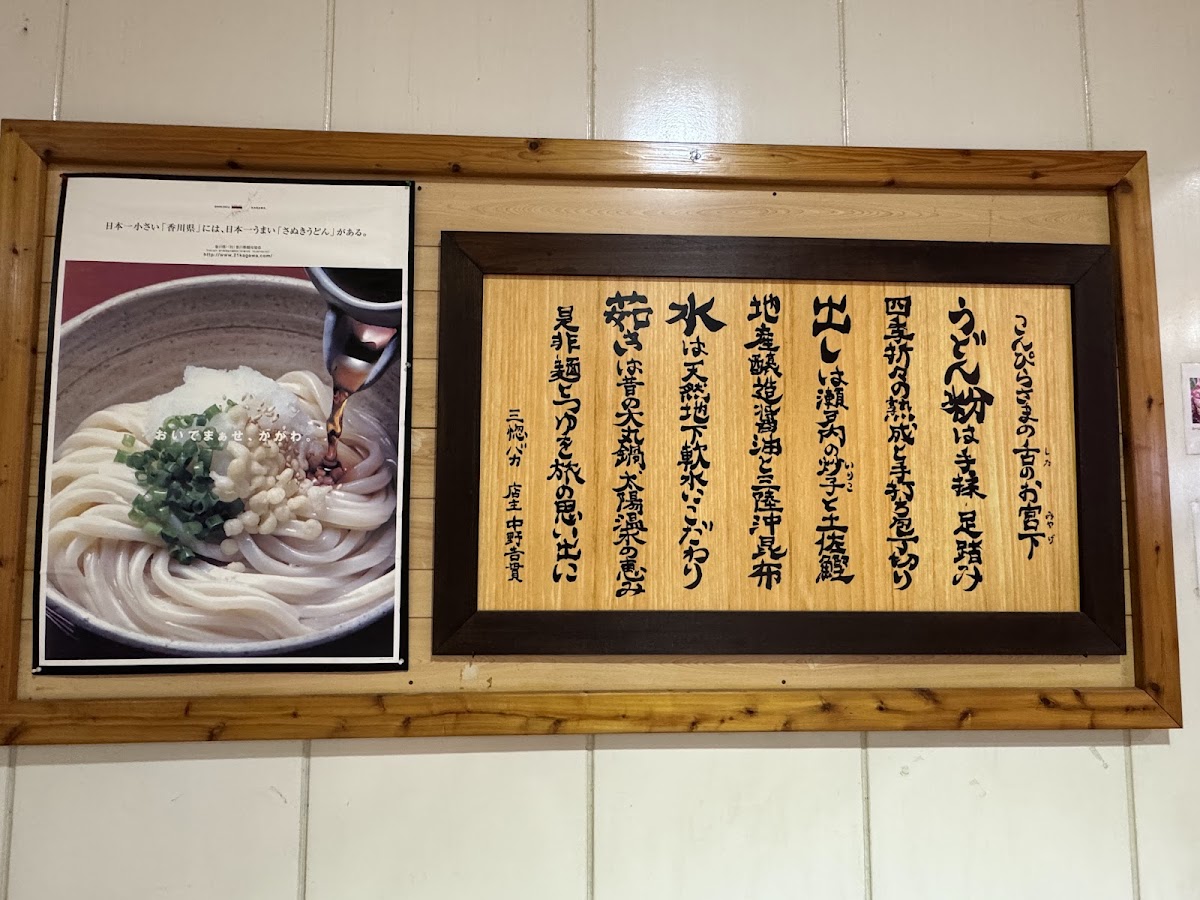 日本一小さい「香川県」には、日本一うまい「さぬきうどん」がある。
http://www.21kagawa.com/
おいでまぁせ、かがわ。
こんぴらさまの古のお宮下
うどん粉は手揉 足踏み
四季折々の熟成と手打ち包丁切り
出しは瀬戸内の炒子と土佐鰹
いりこ
地産醸造醤油と三陸沖昆布
水は天然地下軟水にこだわり
茹では昔の大丸鍋 太陽温水の恵み
是非麺とつゆを旅の思い出に
店主 中野吉貫